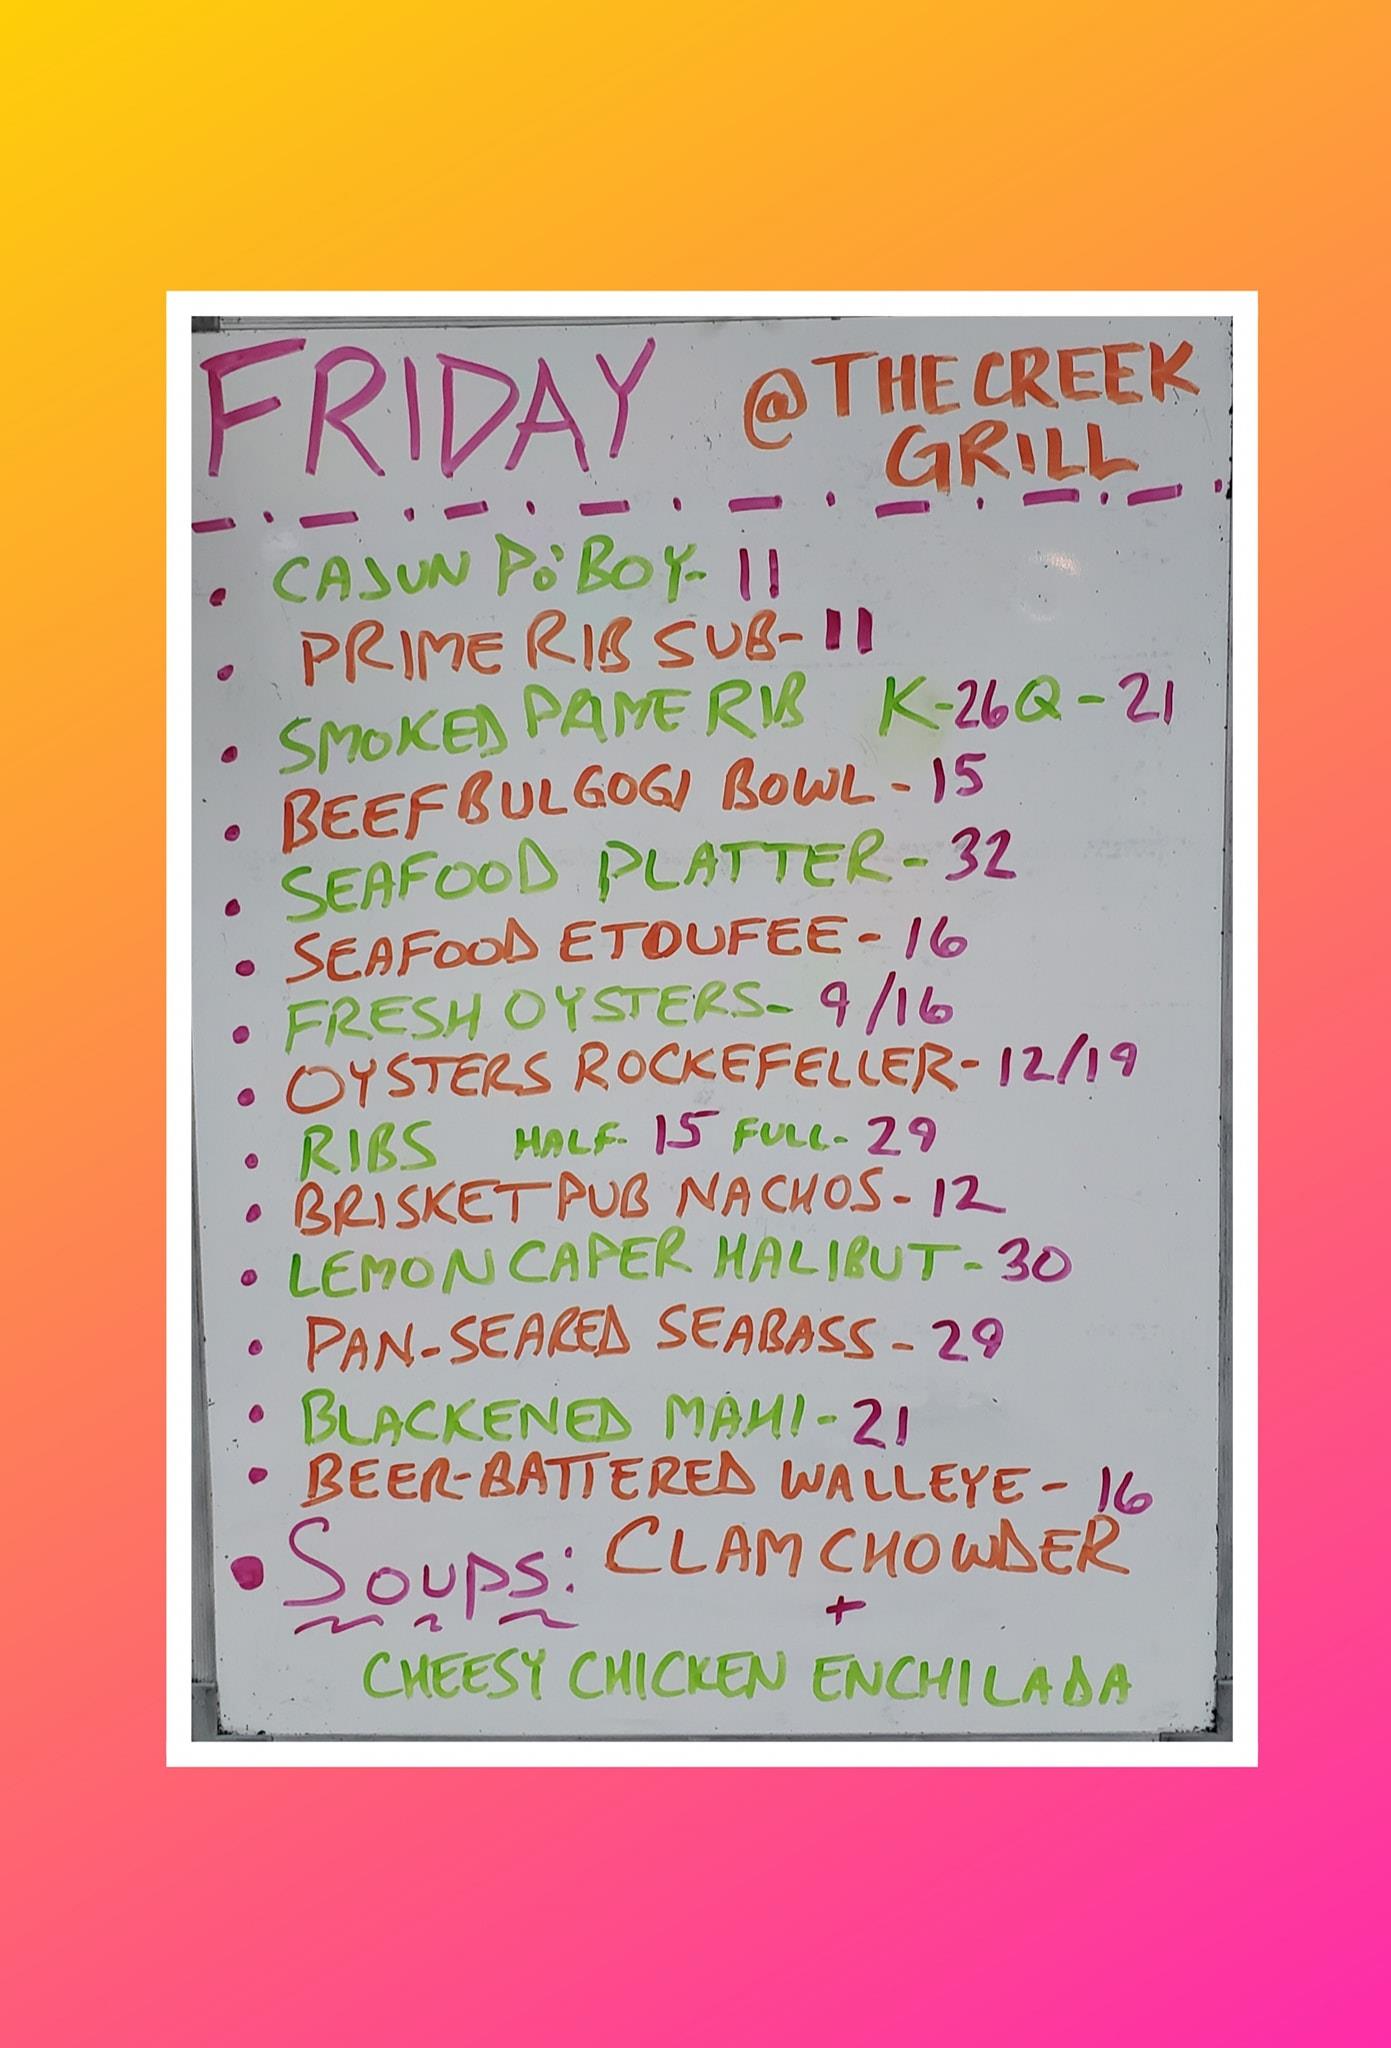 FRIDAY @THE CREEK
GRILL
• CAJUN PO'BOY- 11
• PRIME RIB SUB- 11
• SMOKED PRIME RIB K-26 Q-21
• BEEF BULGOGI BOWL - 15
• SEAFOOD PLATTER - 32
• SEAFOOD ETOUFEE - 16
• FRESH OYSTERS- 9/16
• OYSTERS ROCKEFELLER- 12/19
• RIBS HALF- 15 FULL- 29
• BRISKET PUB NACHOS - 12
• LEMON CAPER HALIBUT - 30
• PAN-SEARED SEABASS - 29
• BLACKENED MAHI - 21
• BEER-BATTERED WALLEYE - 16
• SOUPS: CLAM CHOWDER
+
CHEESY CHICKEN ENCHILADA